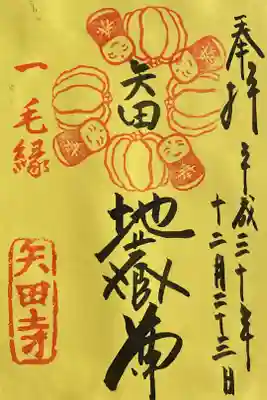 奉拝
平成三十年
十二月二十三日
矢田
地蔵尊
一毛縁
矢田寺